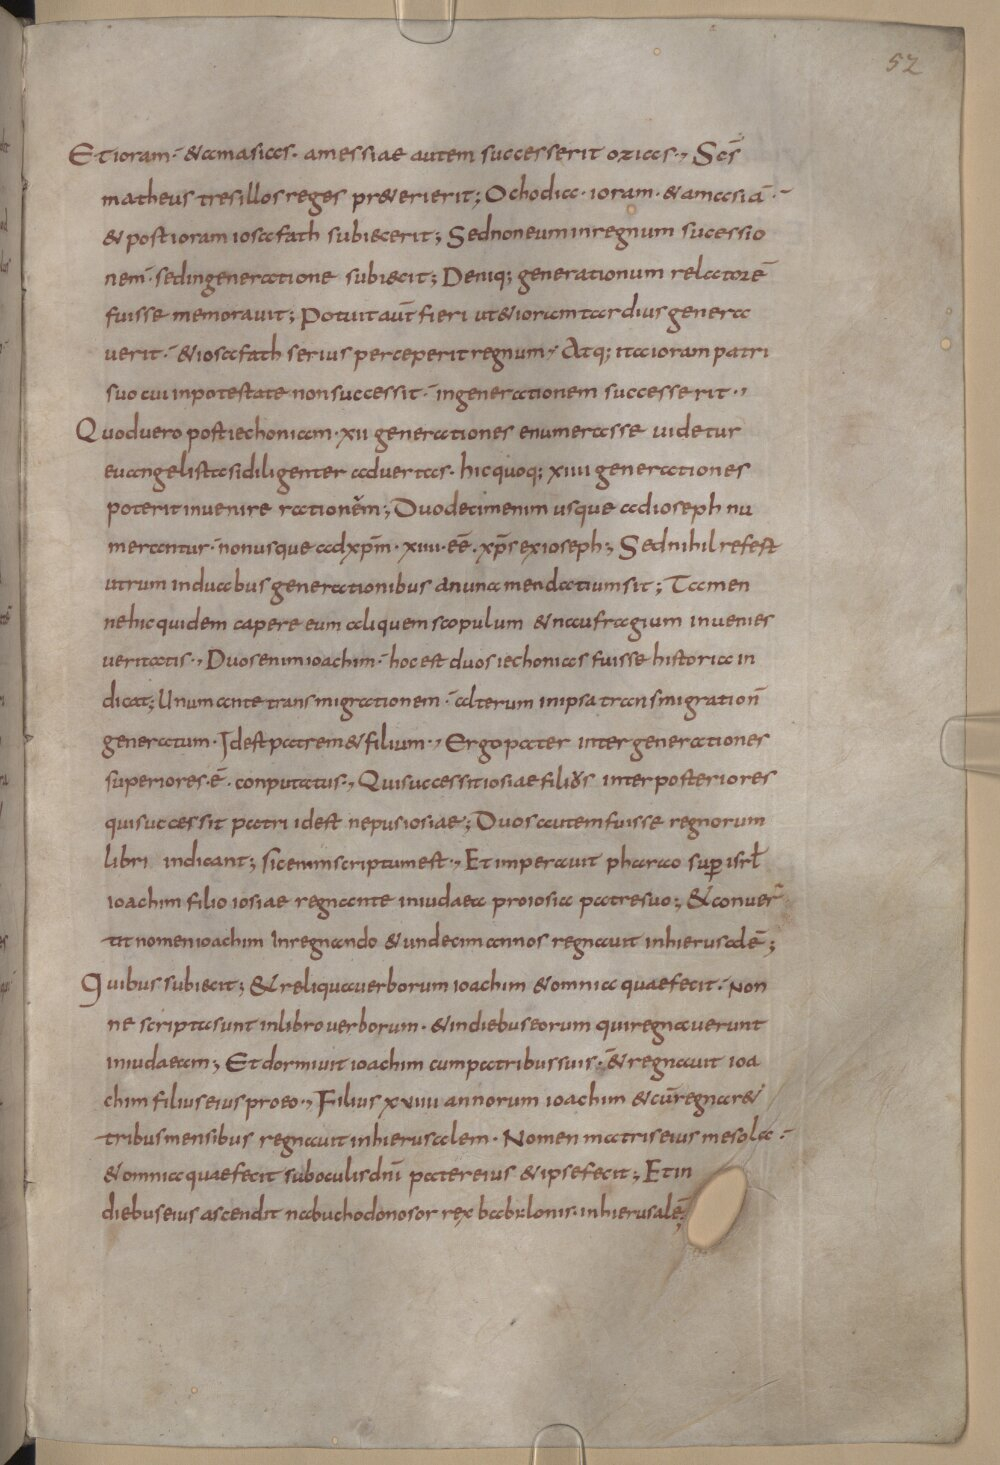 52
Et ioram · & amasias · amessiae autem successerit ozias ·, Scs̄
matheus tres illos reges præterierit; Ochodia · ioram · & amasiā ·
& post ioram iosafath subiecerit; Sed non eum in regnum sucessio
nem · sed in generatione subiecit; Deniq; generationum relatorē
fuisse memorauit; Potuit aūt fieri ut & ioram tardius genera
uerit · & iosafath serius perceperit regnum, Atq; ita ioram patri
suo cui in potestate non successit · in generationem successerit ·,
Quod uero post iechoniam · xii generationes enumerasse uidetur
euangelista si diligenter aduertas · hic quoq; xiiii generationes
poterit inuenire rationem; Duodecim enim usque ad ioseph nu
merantur · non usque ad xp̄m · xiiii · eē · xp̄s ex ioseph; Sed nihil refest
utrum in duabus generationibus an una mendatium sit; Tamen
ne hic quidem capere eum aliquem scopulum & naufragium inuenies
ueritatis ·, Duos enim ioachim · hoc est duos iechonias fuisse historia in
dicat; Unum ante transmigrationem · alterum in ipsa transmigration̄
generatum · Id est patrem & filium ·, Ergo pater inter generationes
superiores · ē · conputatus ·, Qui successit iosiae filius inter posteriores
qui successit patri id est nepus iosiae; Duos autem fuisse regnorum
libri indicant; sic enim scriptum est ·, Et imperauit pharao sup̱ isrł
ioachim filio iosiae regnante in iudaea pro iosia patre suo; & conuer
tit nomen ioachim In regnando & undecim annos regnauit in hierusalē;
Quibus subiecit; & reliqua uerborum ioachim & omnia quae fecit · Non
ne scripta sunt in libro uerborum · & in diebus eorum qui regnauerunt
in iudaeam; Et dormiuit ioachim cum patribus suis · & regnauit ioa
chim filius eius pro eo ·, Filius xviiii annorum ioachim & cū regnar&
tribus mensibus regnauit in hierusalem · Nomen matris eius mesola ·
& omnia quae fecit sub oculis dn̄i pater eius & ipse fecit; Et in
diebus eius ascendit nabuchodonosor rex babilonis · in hierusalē;